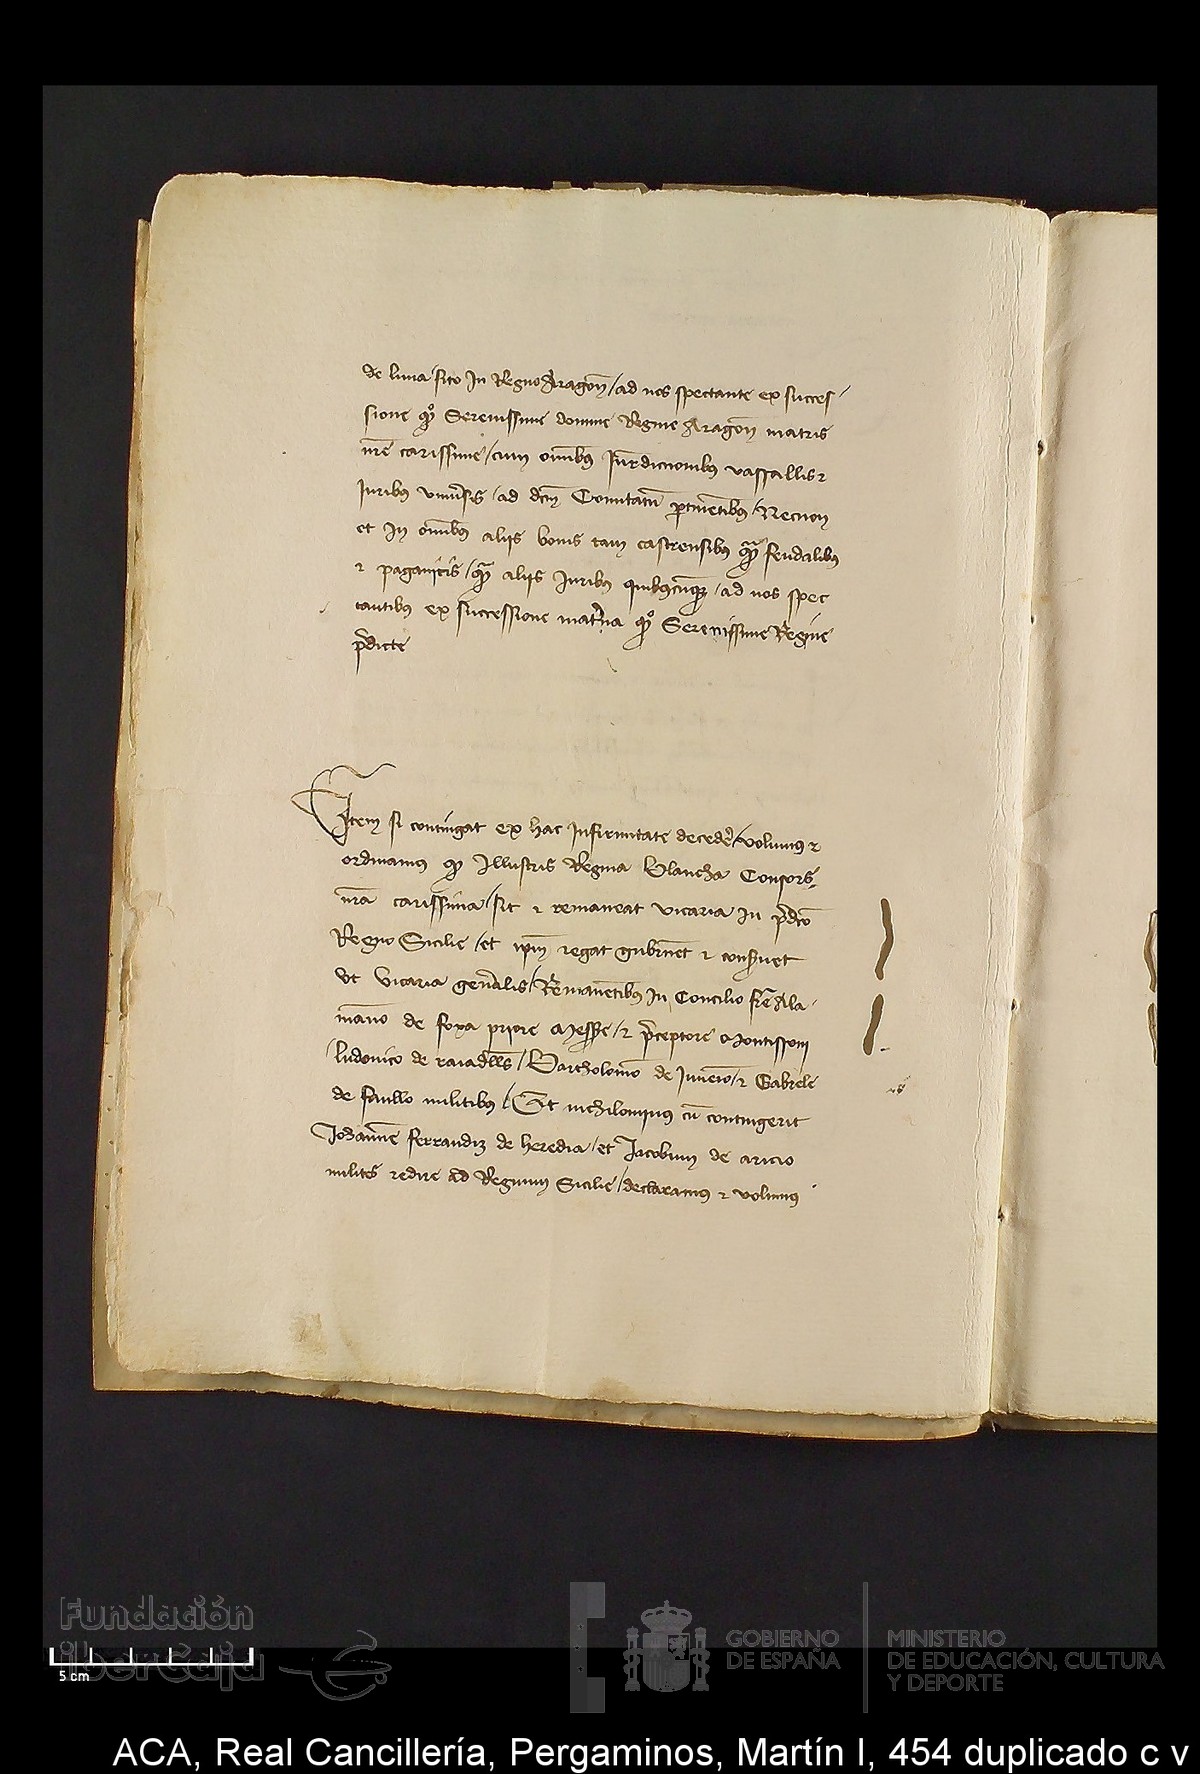 de luna / sito in Regno Aragon̄ / ad nos spectante ex succes-
sione q̊ Serenissime domine Regine Aragon̄ matris
nr̄e carissime / cum om̄ibꝰ Jur̄dicionibꝰ vassallis ⁊
Juribꝰ vniu̓sis / ad dc̄m Comitatū ꝑtinētibꝰ / Necnon
et in om̄ibꝰ aliis bonis tam castrensibꝰ qꝫ feudalibꝰ
⁊ paganicis / qꝫ aliis Juribꝰ quibꝰcūqꝫ / ad nos spec
tantibꝰ ex successione mat̓na q̊ Serenissime Regine
p̄dicte
Item si contingat ex hac Infirmitate deced̓e / volumꝰ ⁊
ordinamꝰ qꝫ Illustris Regina Blancha Consors
nr̄a carissima / sit ⁊ remaneat vicaria in p̄dc̄o
Regno Sicilie / et ip̄m regat gub̓net ⁊ cons̓uet
vt vicaria gen̓alis / Remanētibꝰ in Concilio fr̄e Ala-
manno de foxa priore Messa̅e / ⁊ p̄ceptore Montissoni
ludouico de raiadell̄s / Bartholomeo de Juneio / ⁊ Gabrele
de faullo militibꝰ / Et nichilominꝰ cū contingerit
Johannē ferrandiz de heredia / et Jacobum de aricio
milites redire ad Regnum Sicilie / declaramꝰ ⁊ volumꝰ
Fundación
iberCaja
5 cm
GOBIERNO
DE ESPAÑA
MINISTERIO
DE EDUCACIÓN, CULTURA
Y DEPORTE
ACA, Real Cancillería, Pergaminos, Martín I, 454 duplicado c v